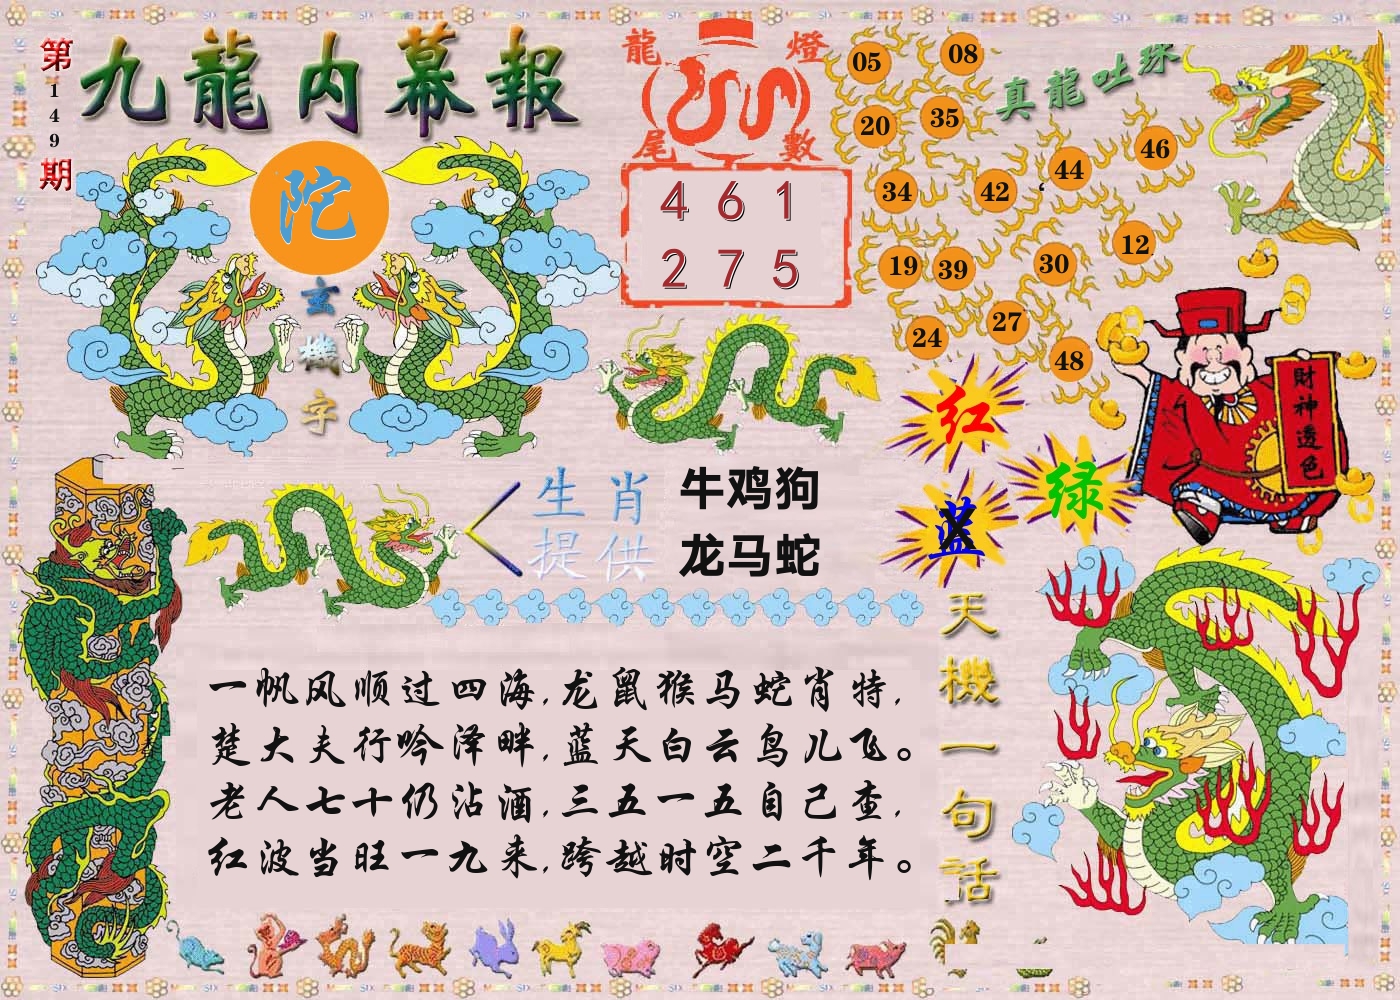 第149期
九龍内幕報
陀
玄機字
龍燈尾數
461
275
真龍吐珠
05 08
20 35
34 42 44 46
19 39 30 12
24 27 48
财神透色
红
绿
蓝
生肖提供
牛鸡狗
龙马蛇
一帆风顺过四海,龙鼠猴马蛇肖特,
楚大夫行吟泽畔,蓝天白云鸟儿飞。
老人七十仍沾酒,三五一五自己查,
红波当旺一九来,跨越时空二千年。
天機一句話